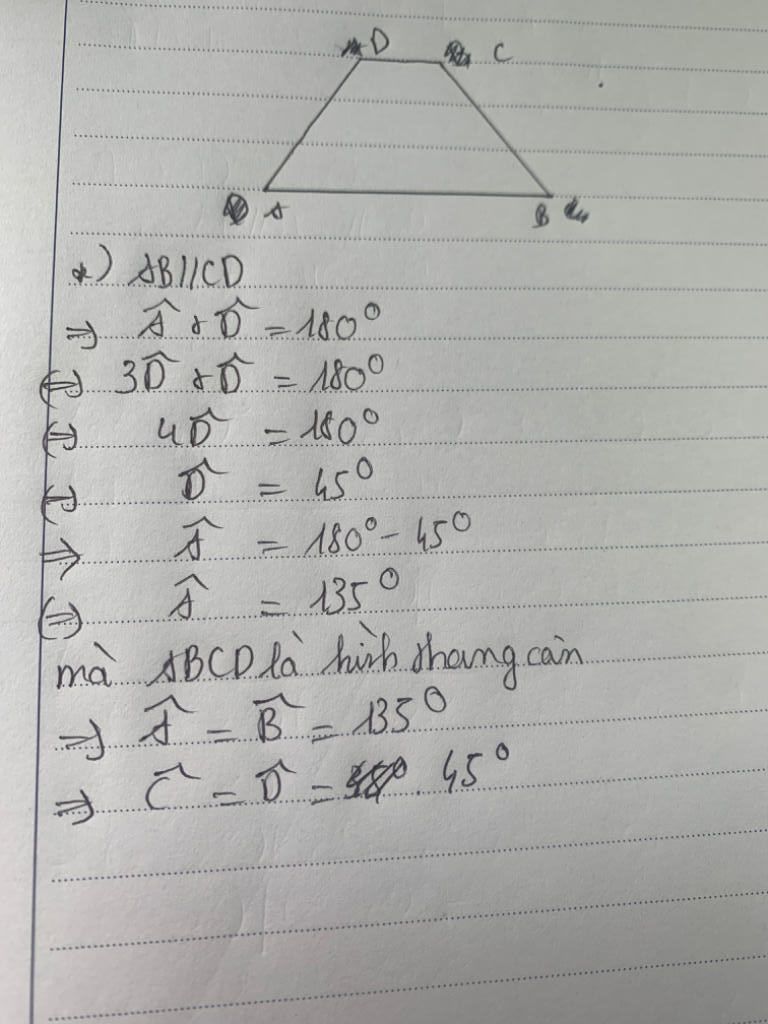 D C
A B
*) AB//CD
⇒ Â + D̂ = 180°
⇔ 3D̂ + D̂ = 180°
⇔ 4D̂ = 180°
⇔ D̂ = 45°
⇒ Â = 180° - 45°
⇔ Â = 135°
mà ABCD là hình thang cân
⇒ Â = B̂ = 135°
⇒ Ĉ = D̂ = 45°